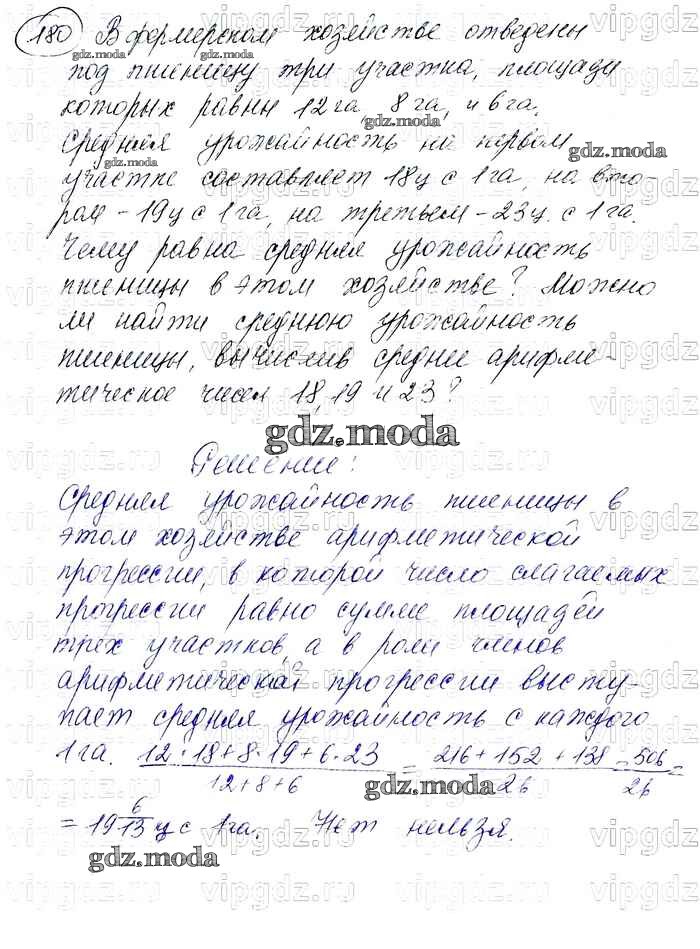 180 В фермерском хозяйстве отведены
под пшеницу три участка, площади
которых равны 12 га, 8 га, и 6 га.
Средняя урожайность на первом
участке составляет 18 ц с 1 га, на вто-
рой - 19 ц с 1 га, на третьем - 23 ц. с 1 га.
Чему равна средняя урожайность
пшеницы в этом хозяйстве? Можно
ли найти среднюю урожайность
пшеницы, вычислив среднее арифме-
тическое чисел 18, 19 и 23?
gdz.moda
Решение:
Средняя урожайность пшеницы в
этом хозяйстве арифметической
прогрессии, в которой число слагаемых
прогрессии равно сумме площадей
трех участков, а в роли членов
арифметической прогрессии высту-
пает средняя урожайность с каждого
1 га. 12·18+8·19+6·23 / 12+8+6 = 216+152+138 / 26 = 506 / 26 =
= 19 6/13 ц с 1 га. Нет нельзя.
gdz.moda